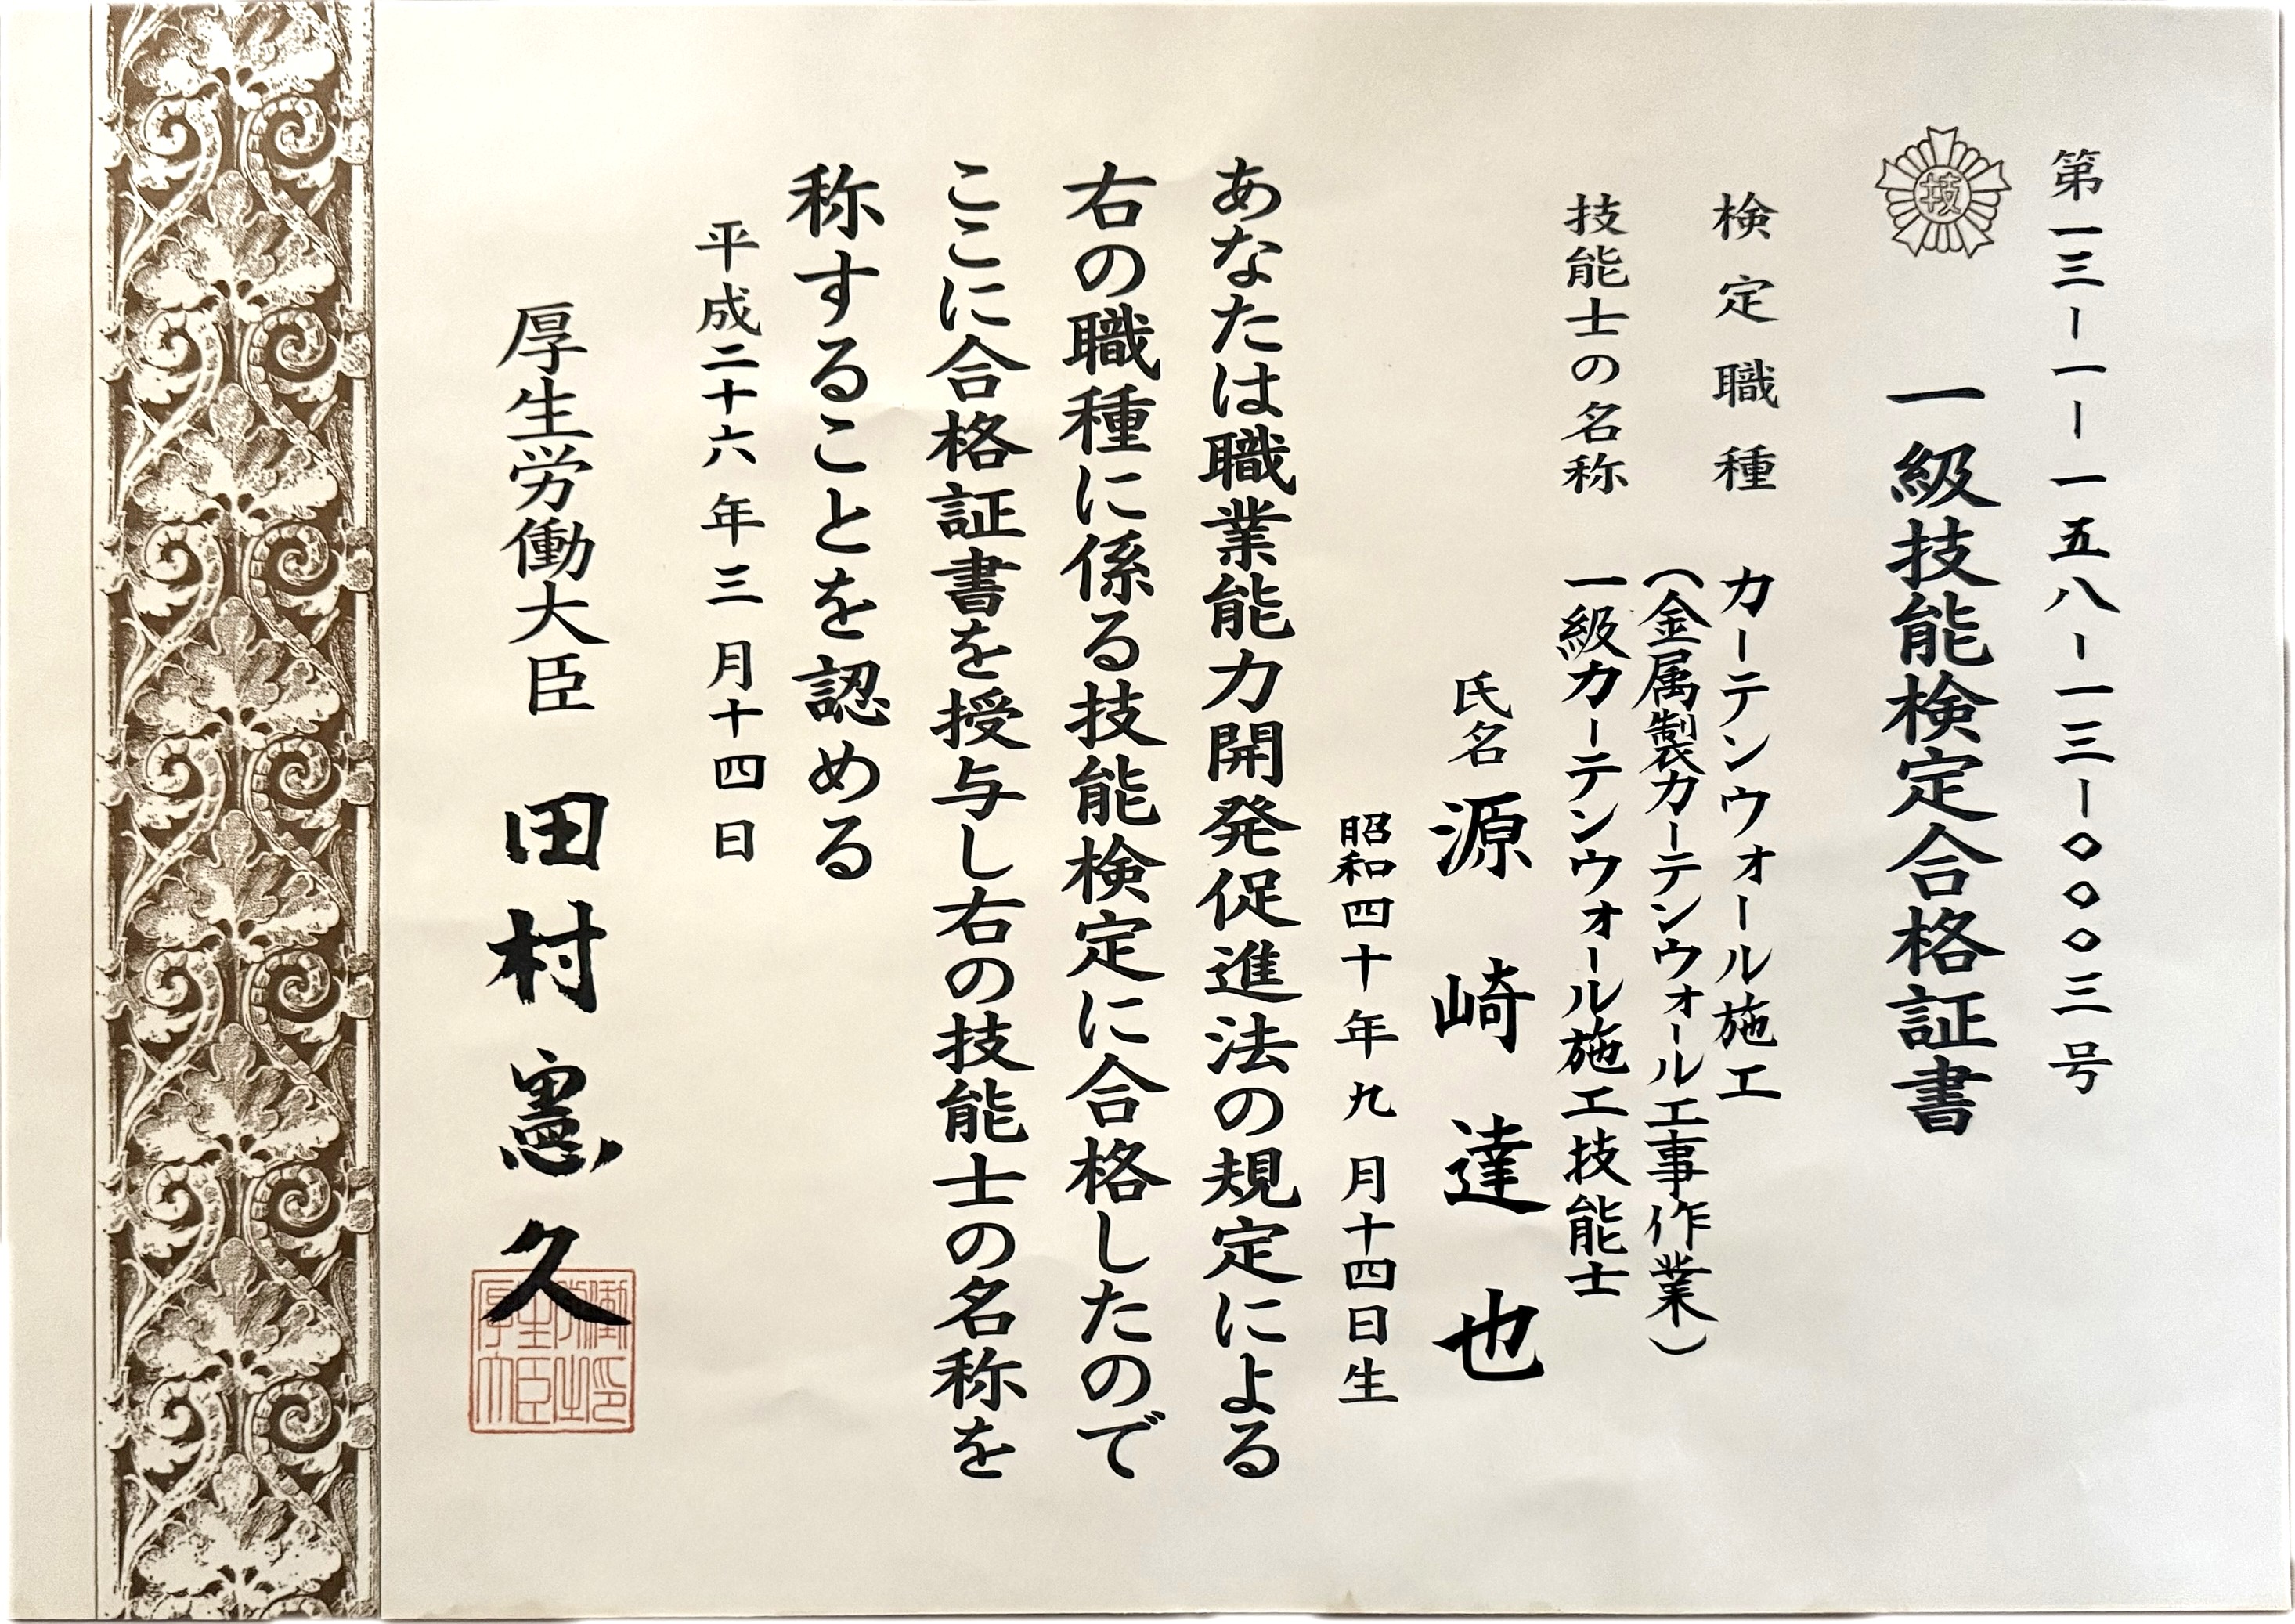 第一三ー一ー一五八ー一三ー〇〇〇三号
技
一級技能検定合格証書
検定職種 カーテンウォール施工
(金属製カーテンウォール工事作業)
技能士の名称 一級カーテンウォール施工技能士
氏名 源崎達也
昭和四十年九月十四日生
あなたは職業能力開発促進法の規定による
右の職種に係る技能検定に合格したので
ここに合格証書を授与し右の技能士の名称を
称することを認める
平成二十六年三月十四日
厚生労働大臣 田村憲久
厚生労働大臣之印